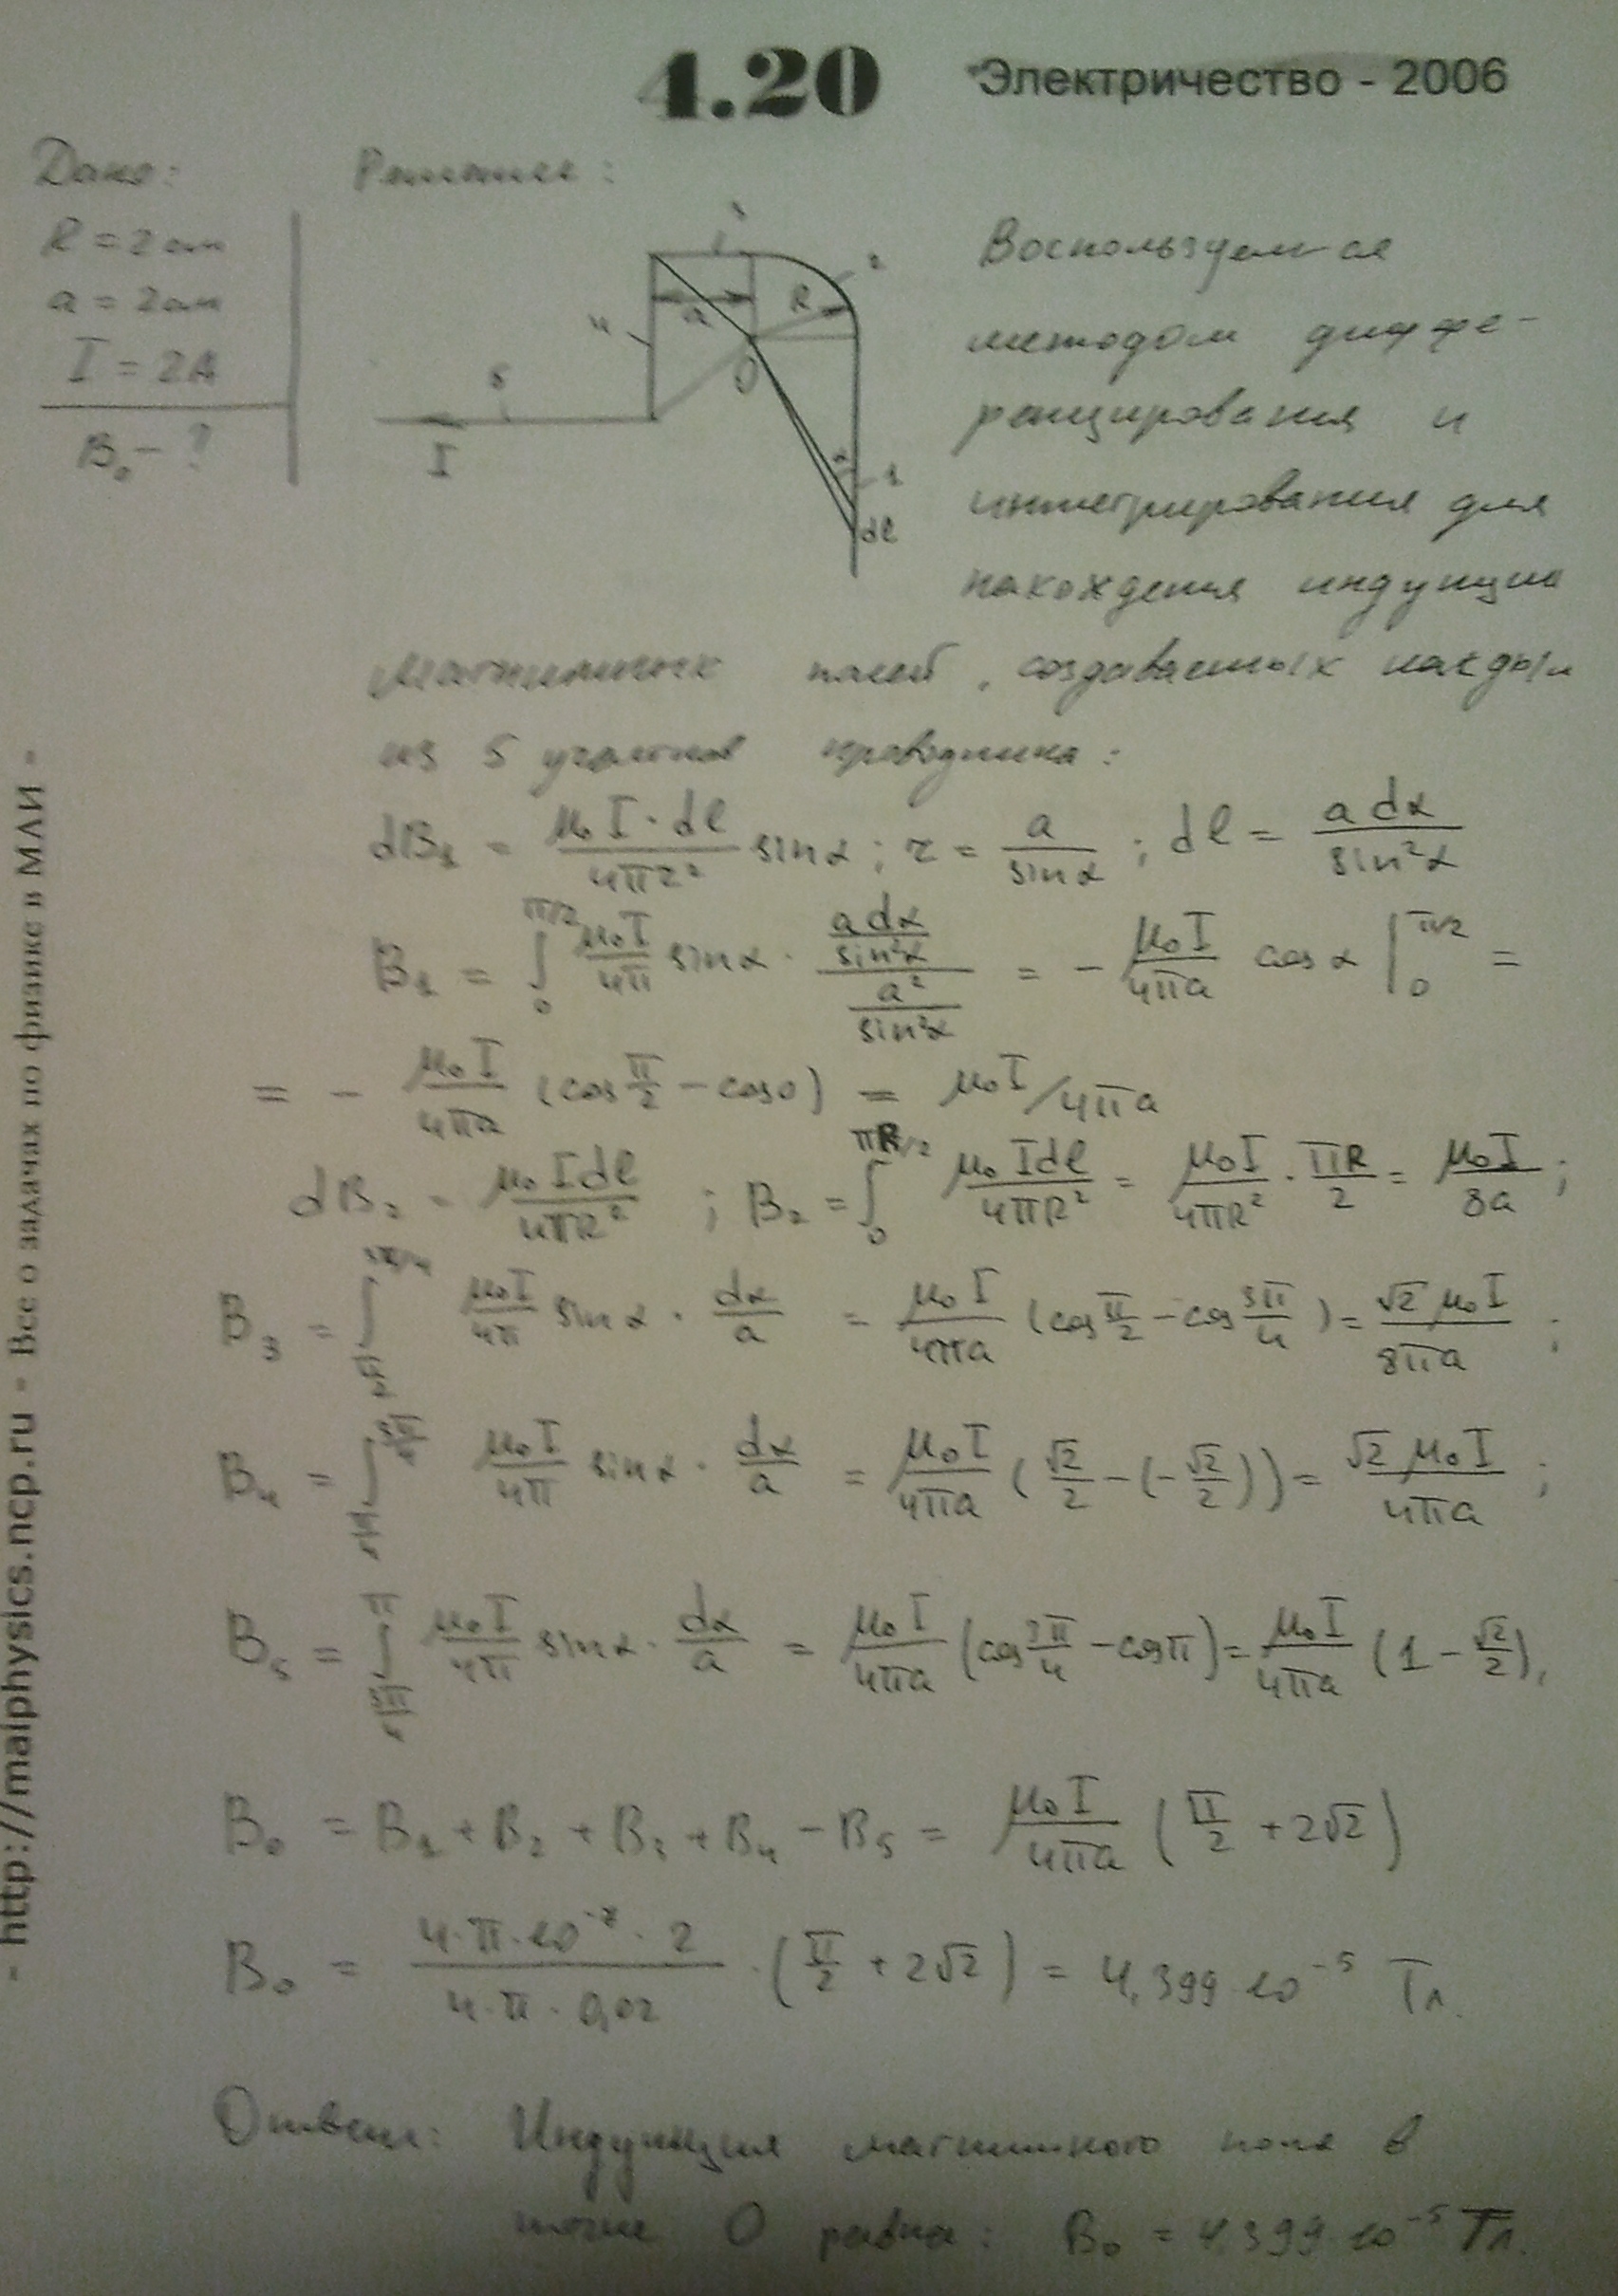 4.20 Электричество - 2006
Дано:
R = 2 см
a = 2 см
I = 2A
B₀ - ?
Решение:
3
2
R
a
4
O
5
I
α
1
dl
Воспользуемся
методом диффе-
ренцирования и
интегрирования для
нахождения индукции
магнитных полей, создаваемых каждым
из 5 участков проводника:
dB₁ = μ₀I·dl/4πr² sinα; r = a/sinα; dl = a dα/sin²α
B₁ = ∫₀^{π/2} μ₀I/4π sinα · (a dα/sin²α)/(a²/sin²α) = - μ₀I/4πa cosα |₀^{π/2} =
= - μ₀I/4πa (cos π/2 - cos0) = μ₀I/4πa
dB₂ = μ₀Idl/4πR² ; B₂ = ∫₀^{πR/2} μ₀Idl/4πR² = μ₀I/4πR² · πR/2 = μ₀I/8a ;
B₃ = ∫_{π/2}^{3π/4} μ₀I/4π sinα · dα/a = μ₀I/4πa (cos π/2 - cos 3π/4) = √2 μ₀I/8πa ;
B₄ = ∫_{π/4}^{3π/4} μ₀I/4π sinα · dα/a = μ₀I/4πa (√2/2 - (-√2/2)) = √2 μ₀I/4πa ;
B₅ = ∫_{3π/4}^{π} μ₀I/4π sinα · dα/a = μ₀I/4πa (cos 3π/4 - cosπ) = μ₀I/4πa (1 - √2/2);
B₀ = B₁ + B₂ + B₃ + B₄ - B₅ = μ₀I/4πa (π/2 + 2√2)
B₀ = 4·π·10⁻⁷·2/4·π·0,02 · (π/2 + 2√2) = 4,399·10⁻⁵ Тл
Ответ: Индукция магнитного поля в
точке O равна: B₀ = 4,399·10⁻⁵ Тл.
- http://maiphysics.ncp.ru - Все о задачах по физике в МАИ -